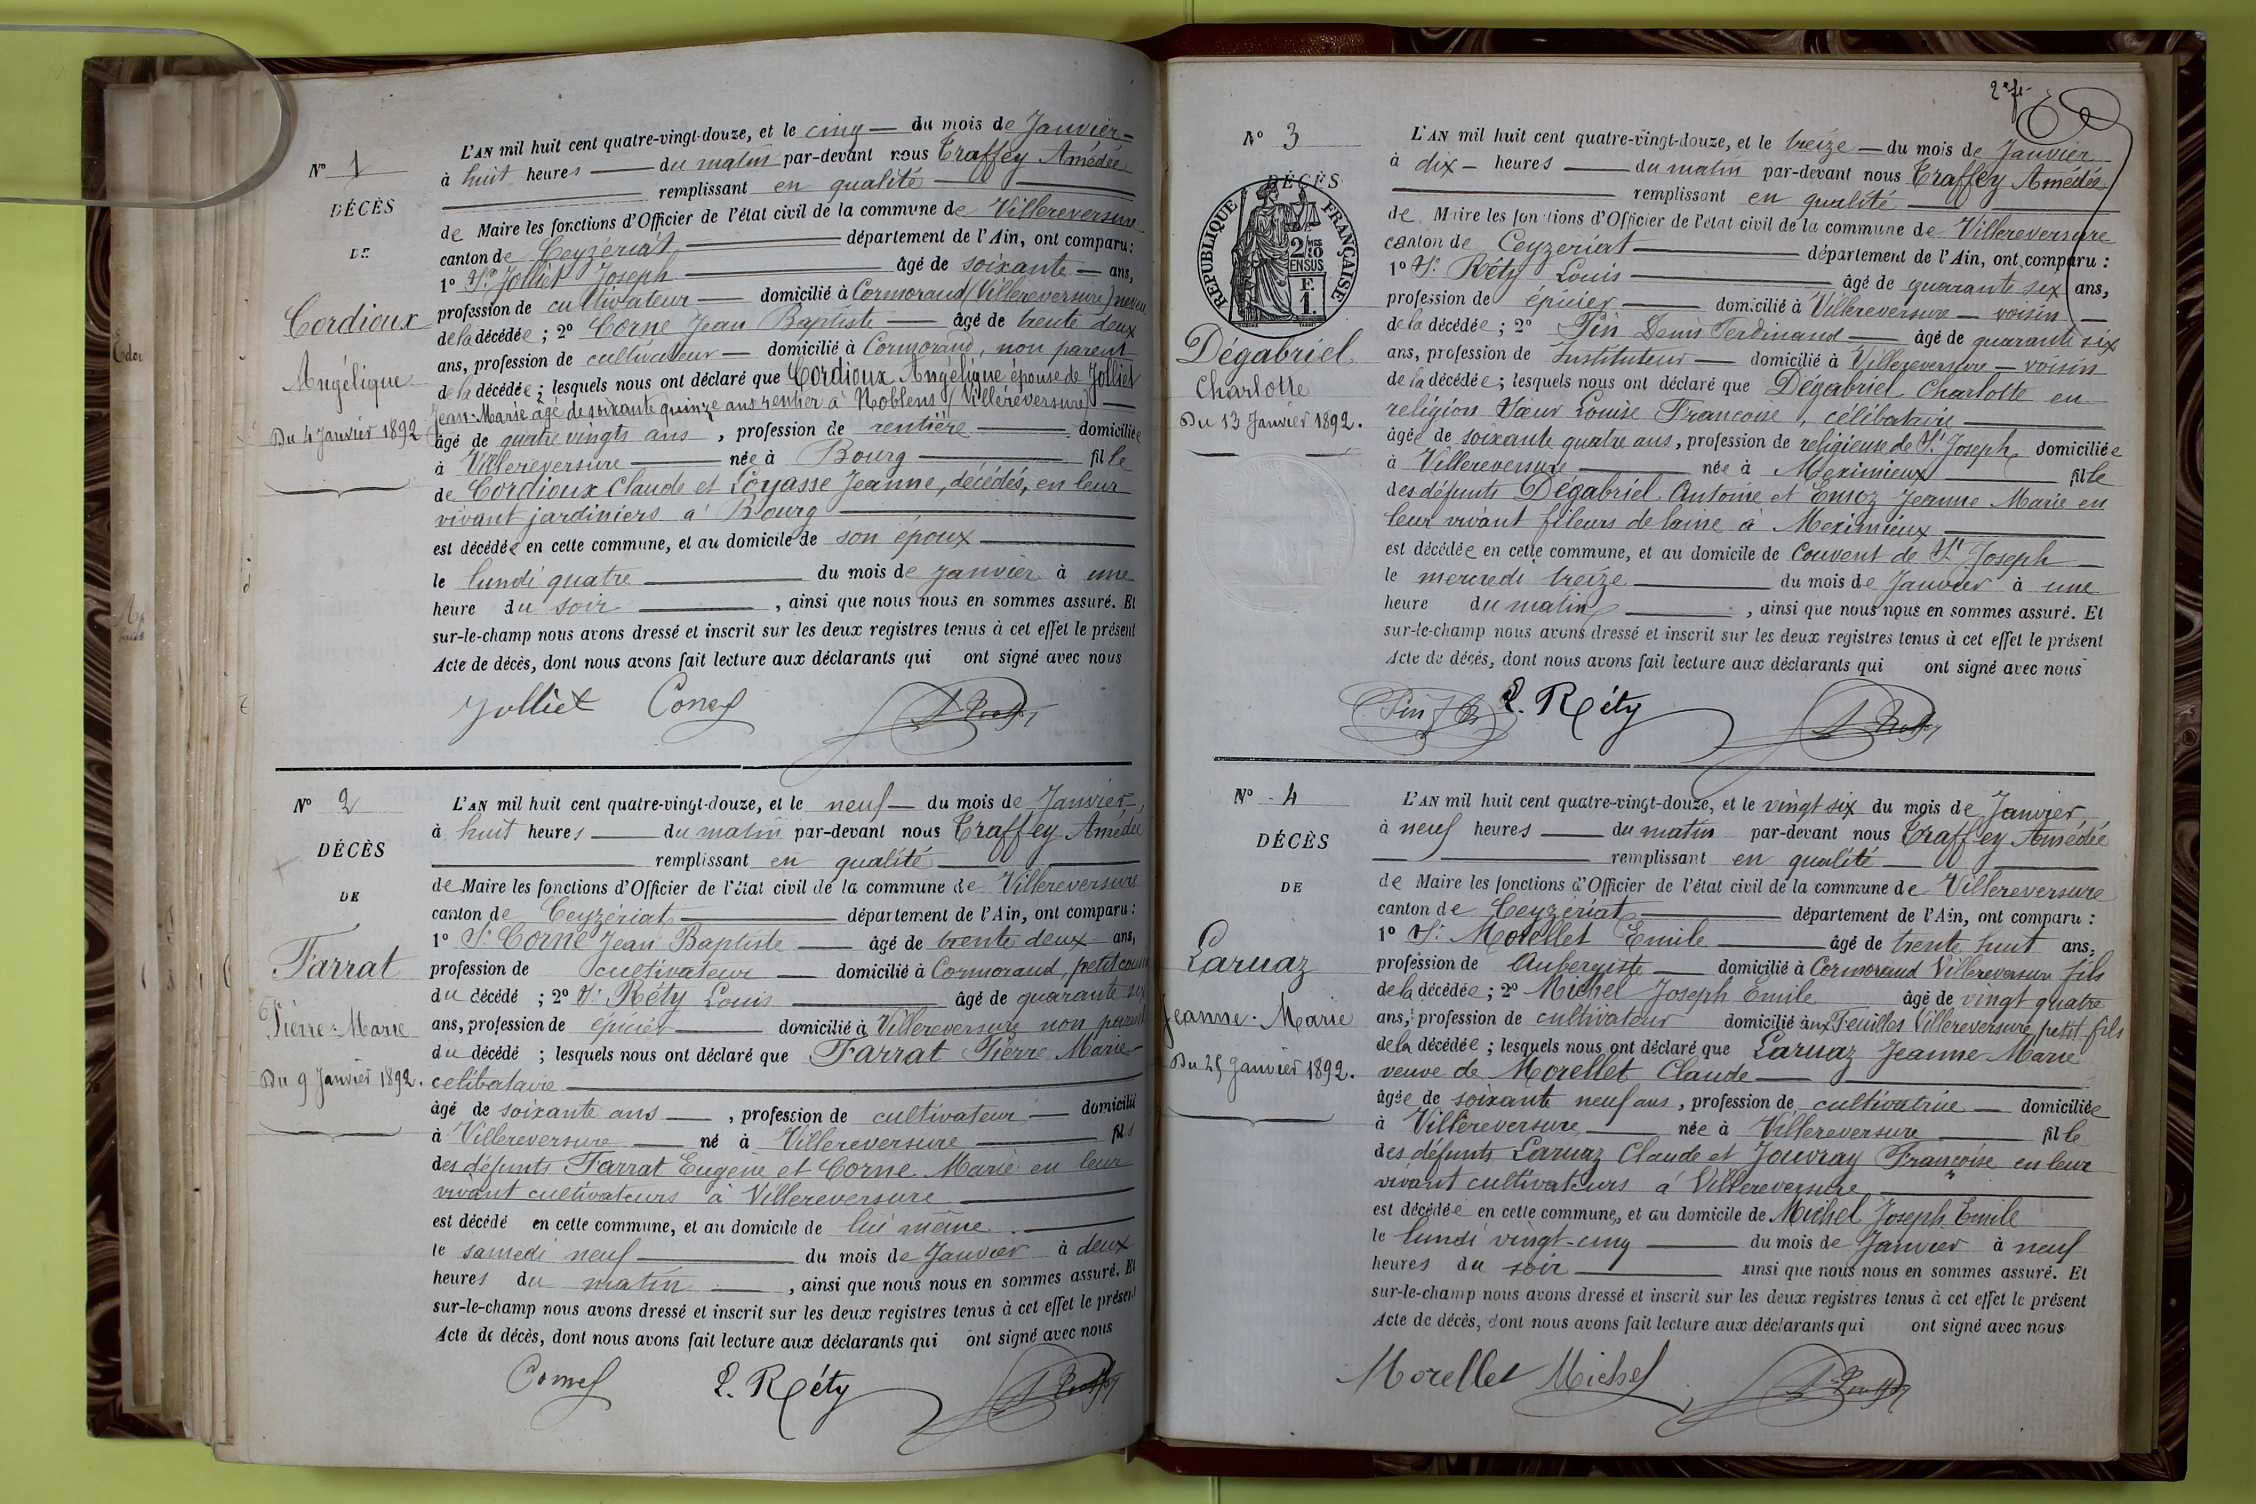 N° 1
DÉCÈS
DE
Cordioux
Angélique
Du 4 Janvier 1892
L'AN mil huit cent quatre-vingt-douze, et le cinq du mois de Janvier
à huit heures du matin par-devant nous Traffey Amédée
remplissant en qualité
de Maire les fonctions d'Officier de l'état civil de la commune de Villereversure
canton de Ceyzériat département de l'Ain, ont comparu :
1° Sr Jolliet Joseph âgé de soixante ans,
profession de cultivateur domicilié à Cormoraud (Villereversure) neveu
de la décédée ; 2° Corne Jean Baptiste âgé de trente deux
ans, profession de cultivateur domicilié à Cormoraud, non parent
de la décédée ; lesquels nous ont déclaré que Cordioux Angélique épouse de Jolliet
Jean-Marie âgé de soixante quinze ans rentier à Noblens (Villereversure)
âgé de quatre vingts ans, profession de rentière domiciliée
à Villereversure née à Bourg fille
de Cordioux Claude et Loyasse Jeanne, décédés, en leur
vivant jardiniers à Bourg
est décédée en cette commune, et au domicile de son époux
le lundi quatre du mois de janvier à une
heure du soir, ainsi que nous nous en sommes assuré. Et
sur-le-champ nous avons dressé et inscrit sur les deux registres tenus à cet effet le présent
Acte de décès, dont nous avons fait lecture aux déclarants qui ont signé avec nous
Jolliet
N° 2
DÉCÈS
DE
Farrat
Pierre-Marie
Du 9 Janvier 1892.
L'AN mil huit cent quatre-vingt-douze, et le neuf du mois de Janvier,
à huit heures du matin par-devant nous Traffey Amédée
remplissant en qualité
de Maire les fonctions d'Officier de l'état civil de la commune de Villereversure
canton de Ceyzériat département de l'Ain, ont comparu :
1° Sr Corne Jean Baptiste âgé de trente deux ans,
profession de cultivateur domicilié à Cormoraud, petit cousin
du décédé ; 2° Sr Réty Louis âgé de quarante six
ans, profession de épicier domicilié à Villereversure non parent
du décédé ; lesquels nous ont déclaré que Farrat Pierre Marie
célibataire
âgé de soixante ans, profession de cultivateur domicilié
à Villereversure né à Villereversure fils
des défunts Farrat Eugène et Corne Marie en leur
vivant cultivateurs à Villereversure
est décédé en cette commune, et au domicile de lui même
le samedi neuf du mois de Janvier à deux
heures du matin, ainsi que nous nous en sommes assuré. Et
sur-le-champ nous avons dressé et inscrit sur les deux registres tenus à cet effet le présent
Acte de décès, dont nous avons fait lecture aux déclarants qui ont signé avec nous
L. Réty
N° 3
DÉCÈS
RÉPUBLIQUE FRANÇAISE
Dégabriel
Charlotte
Du 13 Janvier 1892.
L'AN mil huit cent quatre-vingt-douze, et le treize du mois de Janvier
à dix heures du matin par-devant nous Traffey Amédée
remplissant en qualité
de Maire les fonctions d'Officier de l'état civil de la commune de Villereversure
canton de Ceyzériat département de l'Ain, ont comparu :
1° Sr Réty Louis âgé de quarante six ans,
profession de épicier domicilié à Villereversure voisin
de la décédée ; 2° Pin Denis Ferdinand âgé de quarante six
ans, profession de Instituteur domicilié à Villereversure voisin
de la décédée ; lesquels nous ont déclaré que Dégabriel Charlotte en
religion Sœur Louise Françoise, célibataire
âgée de soixante quatre ans, profession de religieuse de St Joseph domiciliée
à Villereversure née à Meximieux fille
des défunts Dégabriel Antoine et Jeanne Marie en
leur vivant fileurs de laine à Meximieux
est décédée en cette commune, et au domicile de Couvent de St Joseph
le mercredi treize du mois de Janvier à une
heure du matin, ainsi que nous nous en sommes assuré. Et
sur-le-champ nous avons dressé et inscrit sur les deux registres tenus à cet effet le présent
Acte de décès, dont nous avons fait lecture aux déclarants qui ont signé avec nous
Pin L. Réty
N° 4
DÉCÈS
DE
Laruaz
Jeanne-Marie
Du 25 Janvier 1892.
L'AN mil huit cent quatre-vingt-douze, et le vingt six du mois de Janvier,
à neuf heures du matin par-devant nous Traffey Amédée
remplissant en qualité
de Maire les fonctions d'Officier de l'état civil de la commune de Villereversure
canton de Ceyzériat département de l'Ain, ont comparu :
1° Sr Morellet Emile âgé de trente huit ans,
profession de Aubergiste domicilié à Cormoraud Villereversure fils
de la décédée ; 2° Michel Joseph Emile âgé de vingt quatre
ans, profession de cultivateur domicilié aux Feuilles Villereversure petit fils
de la décédée ; lesquels nous ont déclaré que Laruaz Jeanne Marie
veuve de Morellet Claude
âgée de soixante neuf ans, profession de cultivatrice domiciliée
à Villereversure née à Villereversure fille
des défunts Laruaz Claude et Jouvray Françoise en leur
vivant cultivateurs à Villereversure
est décédée en cette commune, et au domicile de Michel Joseph Emile
le lundi vingt-cinq du mois de Janvier à neuf
heures du soir ainsi que nous nous en sommes assuré. Et
sur-le-champ nous avons dressé et inscrit sur les deux registres tenus à cet effet le présent
Acte de décès, dont nous avons fait lecture aux déclarants qui ont signé avec nous
Morellet Michel